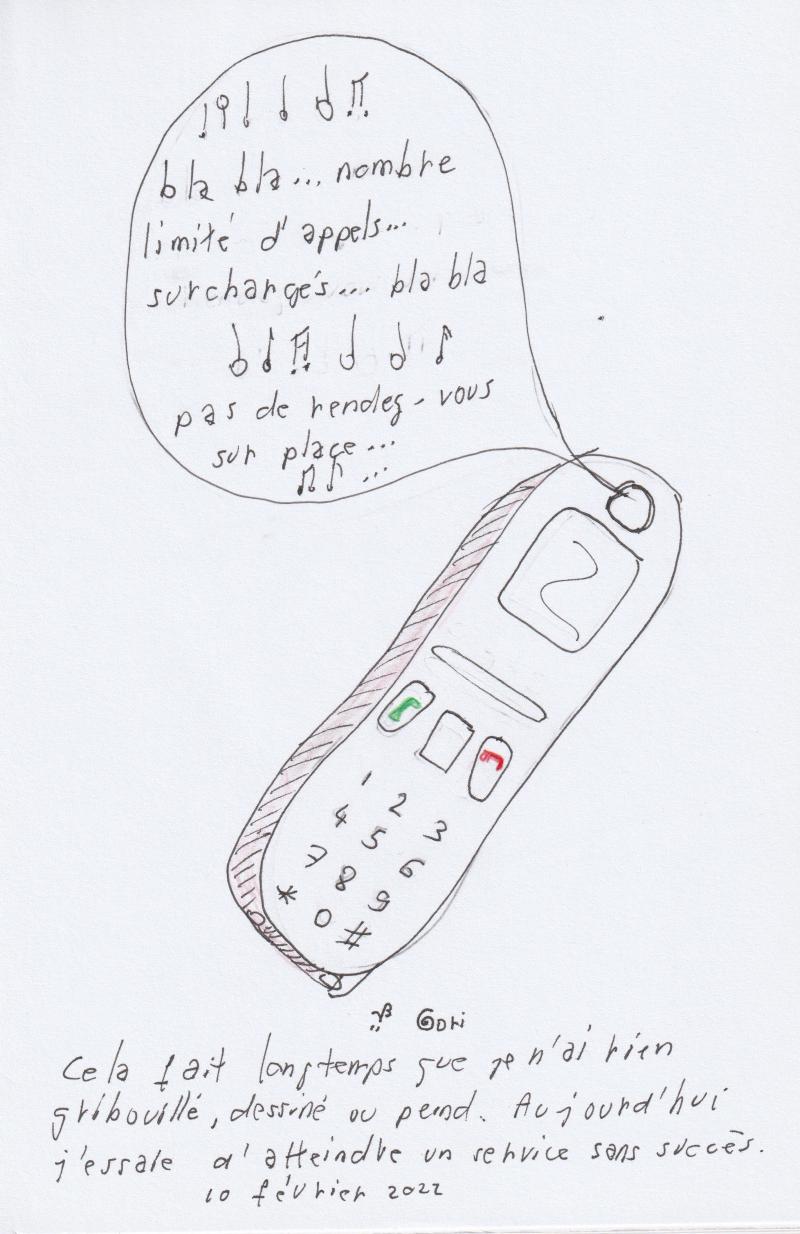 bla bla... nombre
limité d'appels...
surchargés.... bla bla
pas de rendez-vous
sur place...
...
2
1 2 3
4 5 6
7 8 9
* 0 #
Gori
Cela fait longtemps que je n'ai rien
gribouillé, dessiné ou peind. Aujourd'hui
j'essaie d'atteindre un service sans succès.
10 février 2022